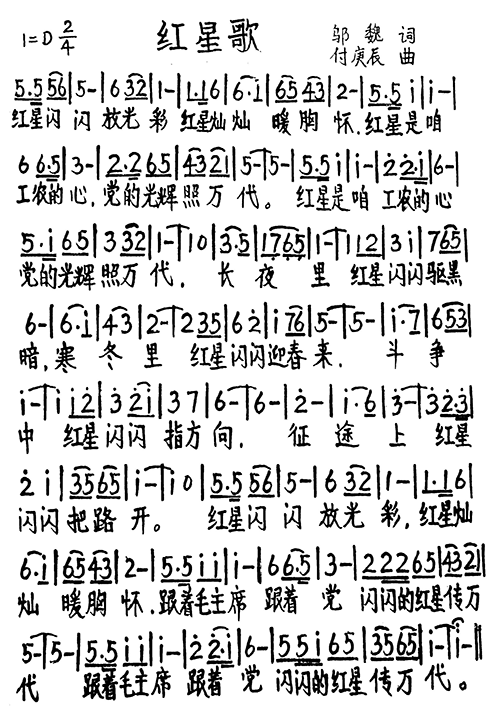 1=D 2/4 红星歌 邬魏 词
付庚辰 曲
5·5 56 | 5 - | 6 32 | 1 - | 1·1 6 | 6·1 | 65 43 | 2 - | 5·5 i | i - |
红星闪 闪 放光 彩 红星灿灿 暖胸 怀,红星是咱
6 6·5 | 3 - | 2·2 65 | 43 21 | 5 - | 5 - | 5·5 i | i - | 2 2·i | 6 - |
工农的心,党的光辉照万 代。 红星是咱 工农的心
5·i 65 | 3 32 | 1 - | 1 0 | 3·5 | 1765 | 1 - | 1 12 | 3 i | 7 65 |
党的光辉照万 代, 长 夜 里 红星闪闪驱黑
6 - | 6·i | 43 | 2 - | 2 35 | 6 2 | i 76 | 5 - | 5 - | i·7 | 6 53 |
暗,寒 冬 里 红星闪闪迎春来, 斗 争
i - | i i2 | 3 2i | 3 7 | 6 - | 6 - | 2 - | i·6 | 3 - | 3 23 |
中 红星闪闪 指方向, 征 途 上 红星
2 i | 35 65 | i - | i 0 | 5·5 56 | 5 - | 6 32 | 1 - | 1·1 6 |
闪闪把路 开。 红星闪 闪 放光 彩,红星灿
6·i | 65 43 | 2 - | 5·5 i i | i - | 6 6·5 | 3 - | 222 65 | 43 21 |
灿 暖胸 怀,跟着毛主席 跟着 党 闪闪的红星传万
5 - | 5 - | 5·5 i i | i - | 2 2·i | 6 - | 55i 65 | 35 65 | i - | i - ‖
代 跟着毛主席 跟着 党 闪闪的红星传万代。